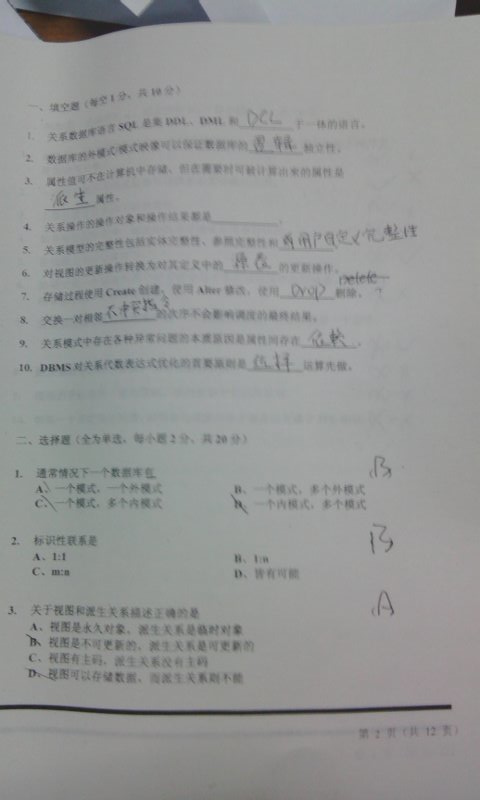 一、填空题（每空1分，共10分）
1. 关系数据库语言 SQL 是集 DDL、DML 和 DCL 于一体的语言。
2. 数据库的外模式/模式映像可以保证数据库的 逻辑 独立性。
3. 属性值可不在计算机中存储，但在需要时可被计算出来的属性是
派生 属性。
4. 关系操作的操作对象和操作结果都是 。
5. 关系模型的完整性包括实体完整性、参照完整性和 用户自定义完整性
6. 对视图的更新操作转换为对其定义中的 基表 的更新操作。
Delete
7. 存储过程使用 Create 创建，使用 Alter 修改，使用 Drop 删除。 ?
8. 交换一对相邻 不冲突指令 的次序不会影响调度的最终结果。
9. 关系模式中存在各种异常问题的本质原因是属性间存在 依赖 。
10. DBMS 对关系代数表达式优化的首要原则是 选择 运算先做。
二、选择题（全为单选，每小题2分，共20分）
1. 通常情况下一个数据库包 B
A、一个模式，一个外模式 B、一个模式，多个外模式
C、一个模式，多个内模式 D、一个内模式，多个模式
2. 标识性联系是 B
A、1:1 B、1:n
C、m:n D、皆有可能
3. 关于视图和派生关系描述正确的是 A
A、视图是永久对象，派生关系是临时对象
B、视图是不可更新的，派生关系是可更新的
C、视图有主码，派生关系没有主码
D、视图可以存储数据，而派生关系则不能
第 2 页（共 12 页）